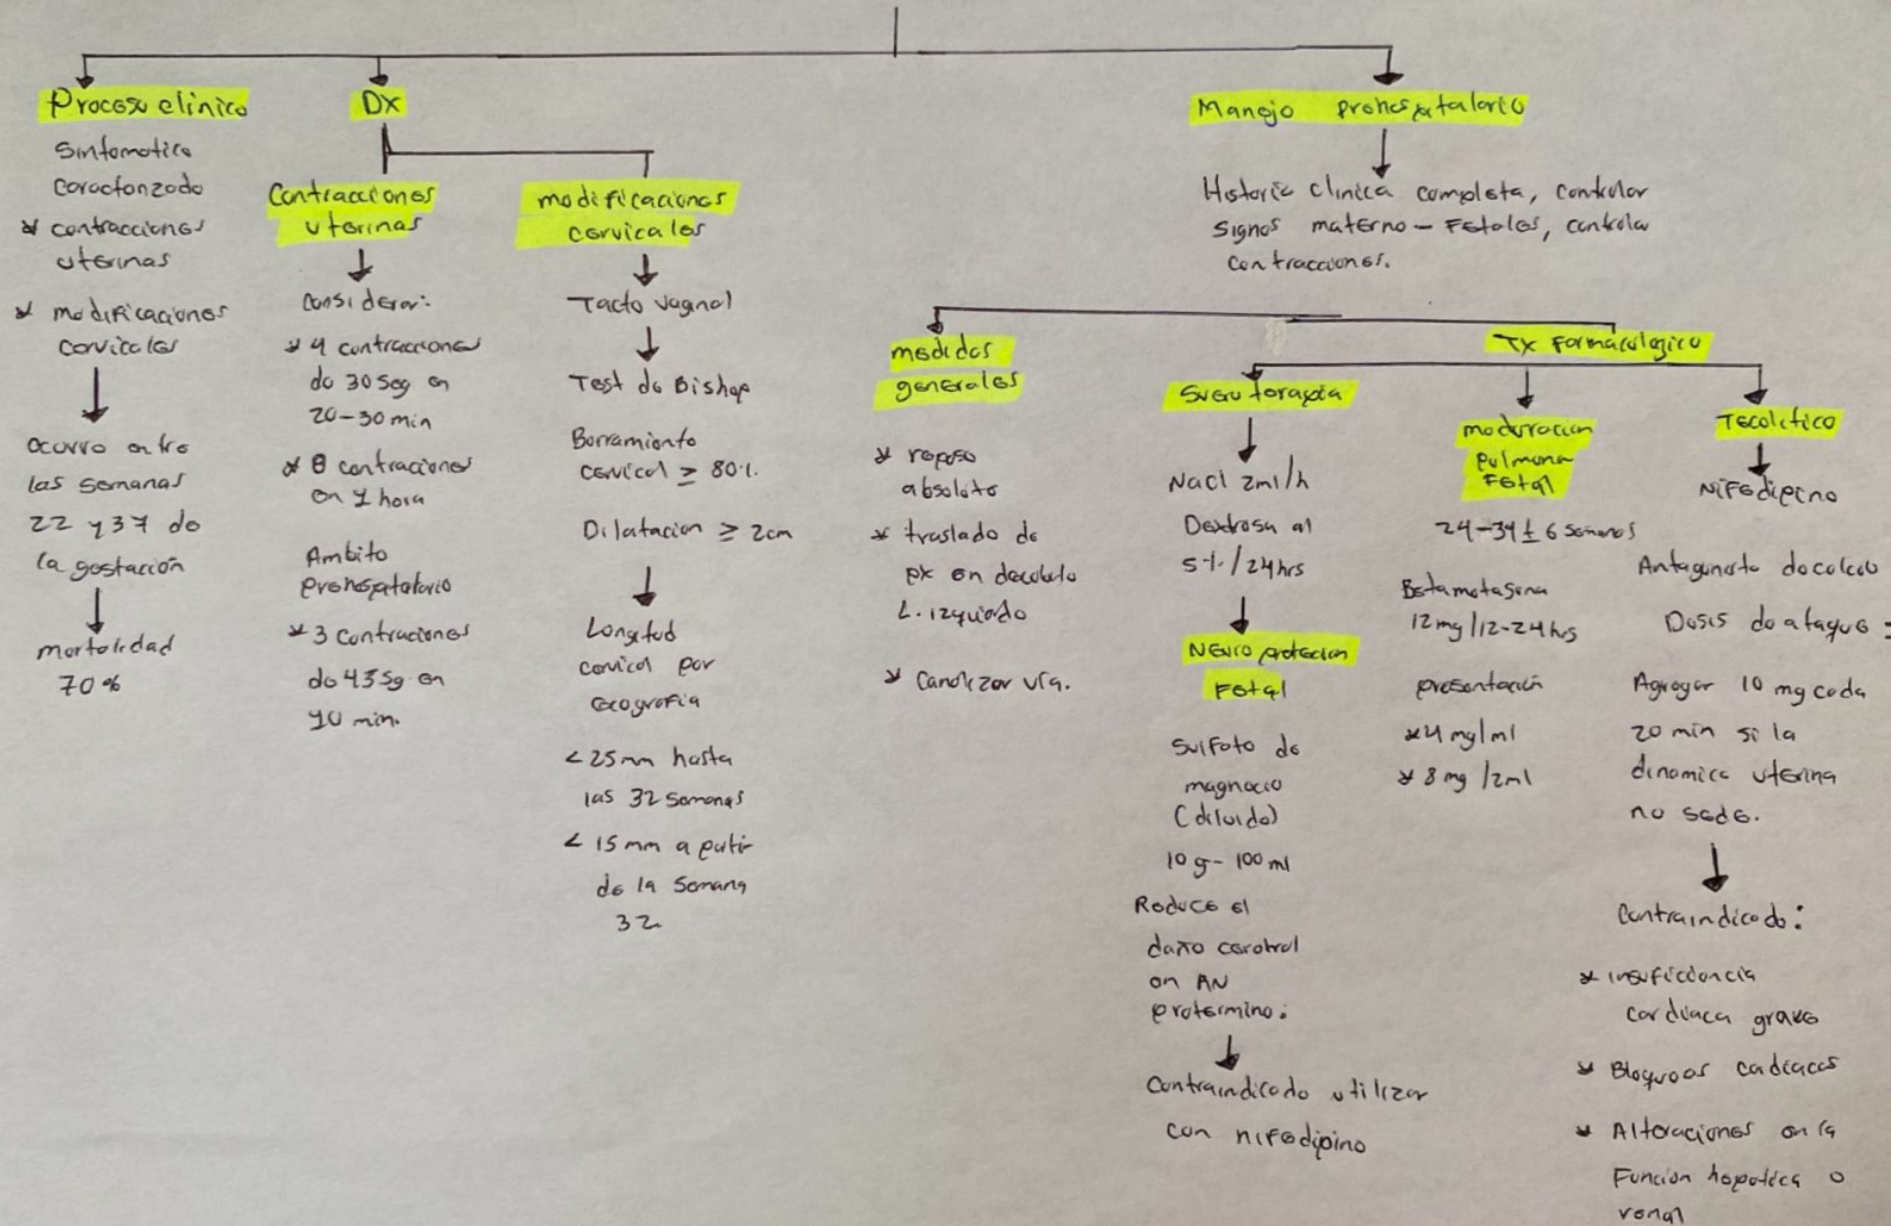 Proceso clinico
Sintomatico
caracterizado
* contracciones
uterinas
* modificaciones
cervicales
ocurre entre
las semanas
22 y 37 de
la gestación
mortalidad
70%
Dx
Contracciones
uterinas
Considerar:
* 4 contracciones
de 30 seg en
20-30 min
* 8 contraciones
en 1 hora
Ambito
prehospitalario
* 3 contraciones
de 45 sg en
10 min.
modificaciones
cervicales
Tacto vaginal
Test de Bishop
Borramiento
cervical ≥ 80%
Dilatacion ≥ 2cm
Longitud
cervical por
ecografia
< 25mm hasta
las 32 semanas
< 15 mm a partir
de la semana
32
Manejo prehospitalario
Historia clinica completa, controlar
signos materno - Fetales, controlar
contracciones.
medidas
generales
* reposo
absoluto
* traslado de
px en decubito
L. izquierdo
* Canalizar vía.
Tx Farmacologico
Sueroterapia
Nacl 2ml/h
Dextrosa al
5%/24hrs
Neuroproteccion
Fetal
Sulfato de
magnecio
(diluido)
10 g - 100 ml
Reduce el
daño cerebral
en RN
pretermino:
Contraindicado utilizar
con nifedipino
maduracion
pulmonar
Fetal
24-34 ± 6 semanas
Betametasona
12mg/12-24hrs
presentación
* 4 mg/ml
* 8 mg/2ml
Tocolitico
Nifedipino
Antagonista de calcio
Dosis de ataque:
Agregar 10 mg cada
20 min si la
dinamica uterina
no sede.
Contraindicado:
* insuficiencia
cardiaca grave
* Bloqueos cardiacos
* Alteraciones en la
Funcion hepatica o
renal